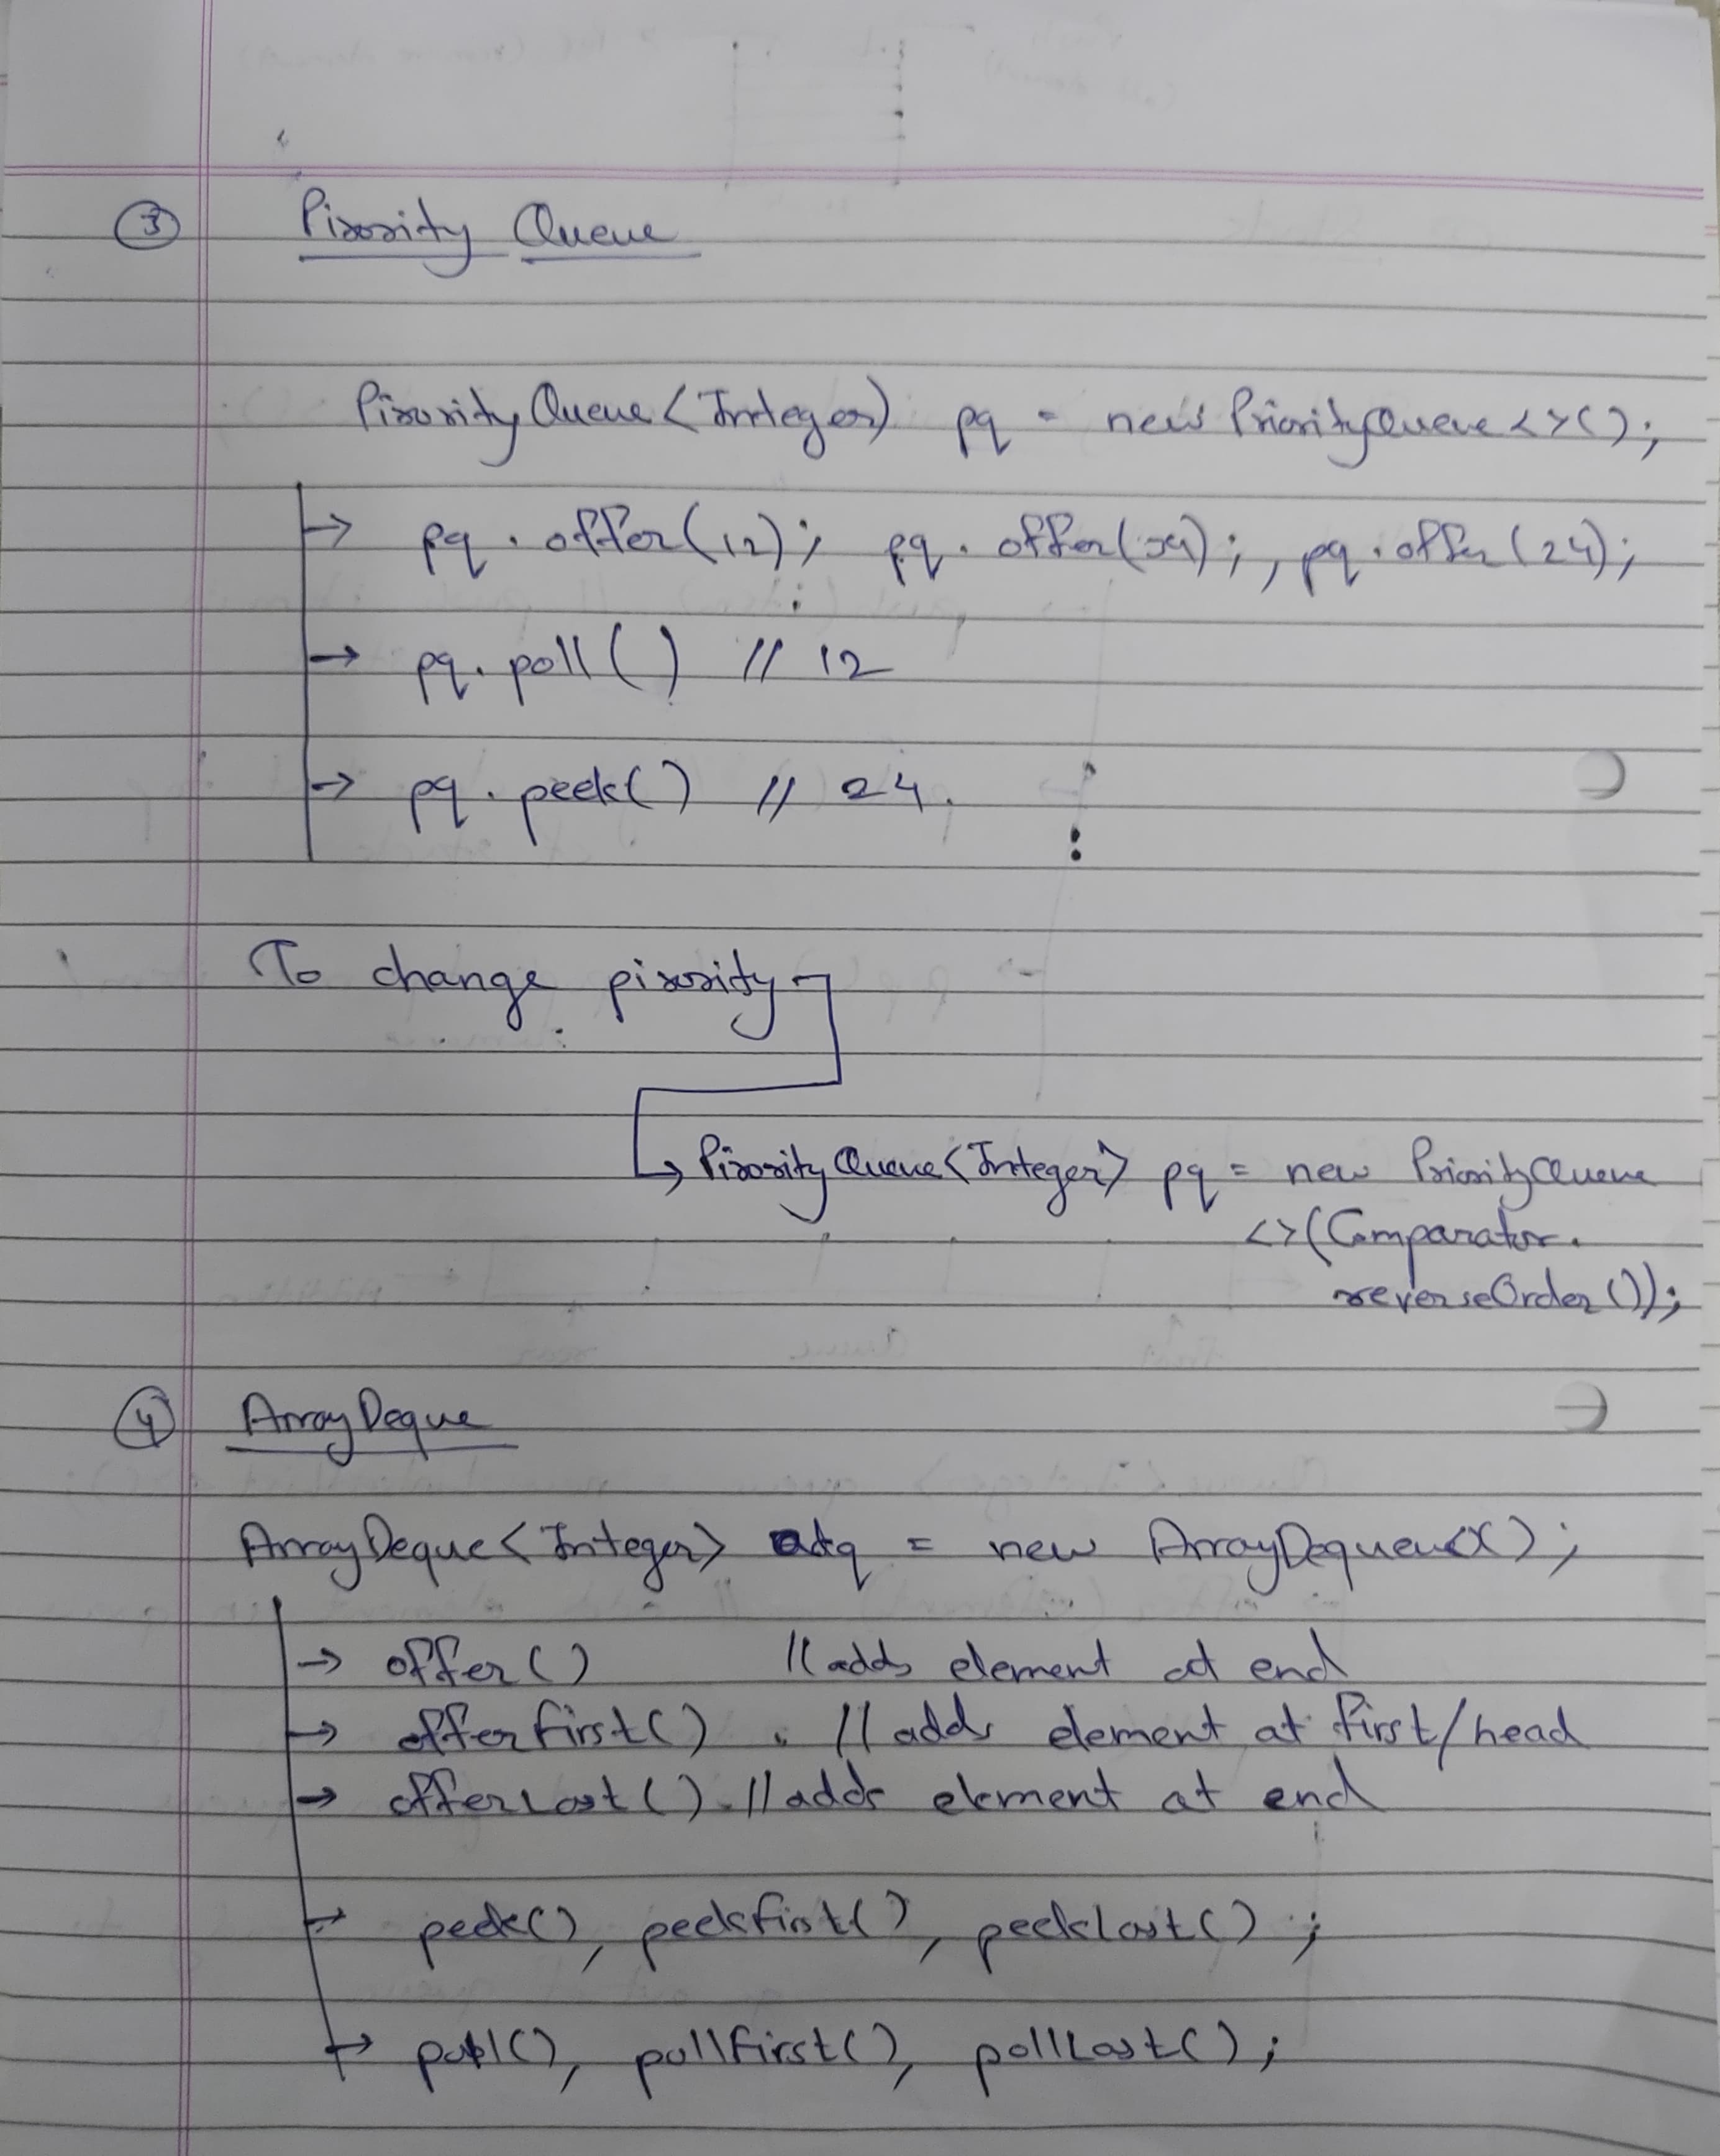 ③ Piority Queue
PiorityQueue<Integer> pq = new PriorityQueue<>();
→ pq.offer(12); pq.offer(34);, pq.offer(24);
→ pq.poll() // 12
→ pq.peek() // 24.
To change piority
→ PiorityQueue<Integer> pq = new PriorityQueue
<>(Comparator.
reverseOrder());
④ ArrayDeque
ArrayDeque<Integer> adq = new ArrayDeque<>();
→ offer() // adds element at end
→ offerfirst() // adds element at first/head
→ offerLast() // adds element at end
→ peek(), peekfirst(), peeklast();
→ poll(), pollfirst(), pollLast();